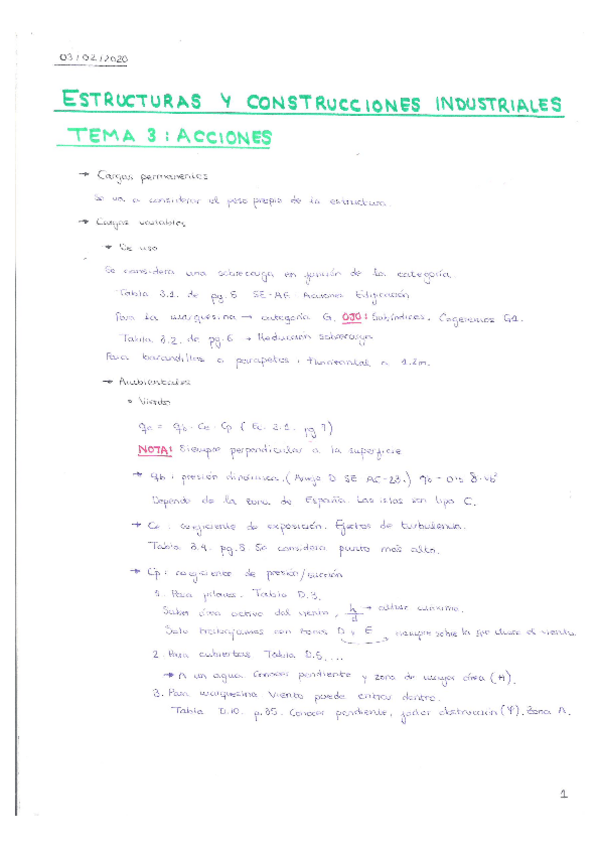 03/02/2020
ESTRUCTURAS Y CONSTRUCCIONES INDUSTRIALES
TEMA 3: ACCIONES
→ Cargas permanentes
Se va a considerar el peso propio de la estructura.
→ Cargas variables
→ De uso
Se considera una sobrecarga en función de la categoría.
Tabla 3.1. de pg. 5 SE-AE. Acciones Edificación
Para la marquesina → categoría G. OJO: Subíndices. Cogeremos G1.
Tabla 3.2. de pg. 6 → Reducción sobrecarga
Para barandillas o parapetos: Horizontal a 1.2m.
→ Ambientales
Viento
qe = qb · Ce · Cp (Ec. 3.1. pg 7)
NOTA: Siempre perpendicular a la superficie
→ qb: presión dinámica. (Anejo D SE AE-23.) qb = 0'5 δ · vb²
Depende de la zona de España. Las islas son tipo C.
→ Ce: coeficiente de exposición. Efectos de turbulencia.
Tabla 3.4. pg. 8. Se considera punto más alto.
→ Cp: coeficiente de presión/succión
1. Para pilares. Tabla D.3.
Saber área activa del viento, h/d → altura máxima.
Solo trabajamos con zonas D y E siempre sobre la sup. el viento.
2. Para cubiertas Tabla D.5, ...
→ A un agua. Conocer pendiente y zona de mayor área (H).
3. Para marquesina Viento puede entrar dentro.
Tabla D.10. p.35. Conocer pendiente, factor obstrucción (φ). Zona A.
1